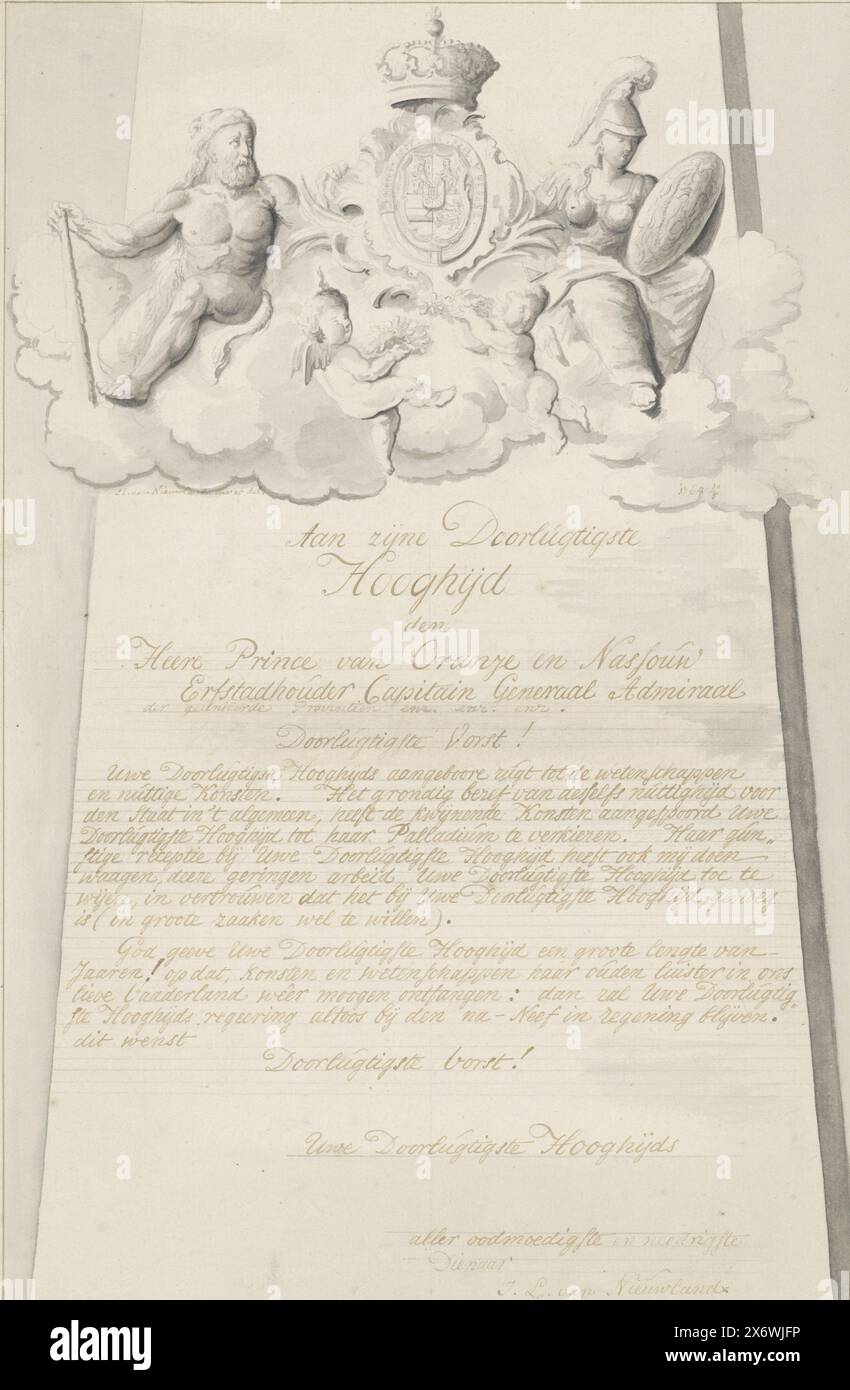 1769
Aan zijne Doorlùgtigste
Hooghijd
den
Heere Prince van Oranze en Nassoùw
Erfstadhoùder Capitain Generaal Admiraal
der geünieerde Provintien enz. enz. enz.
Doorlùgtigste Vorst!
Uwe Doorlùgtigste Hooghijds aangeboore zugt tot de wetenschappen
en nùttige Konsten. Het grondig bezef van desselfs nùttighijd voor
den Staat in't algemeen, heeft de kwijnende Konsten aangespoord Uwe
Doorlùgtigste Hooghijd tot haar Palladiùm te verkiezen. Haar gùn„
stige receptie bij Uwe Doorlùgtigste Hooghijd heeft ook mij doen
waagen, deze geringen arbeid Uwe Doorlùgtigste Hooghijd toe te
wijen, in vertrouwen dat het bij Uwe Doorlùgtigste Hooghijd
is (in groote zaaken wel te willen).
God geeve Uwe Doorlùgtigste Hooghijd een groote lengte van
Jaaren! op dat, Konsten en wetenschappen haar ouden lùister in ons
lieve Vaaderland wêer moogen ontfangen: dan zal Uwe Doorlùgtig„
ste Hooghijds regeering altoos bij den na-Neef in zegening blijven.
dit wenst
Doorlùgtigste Vorst!
Uwe Doorlùgtigste Hooghijds
aller oodmoedigste en nedrigste
Dienaar
J. L. van Nieuwland
alamy
Image ID: 2X6WJFP
www.alamy.com